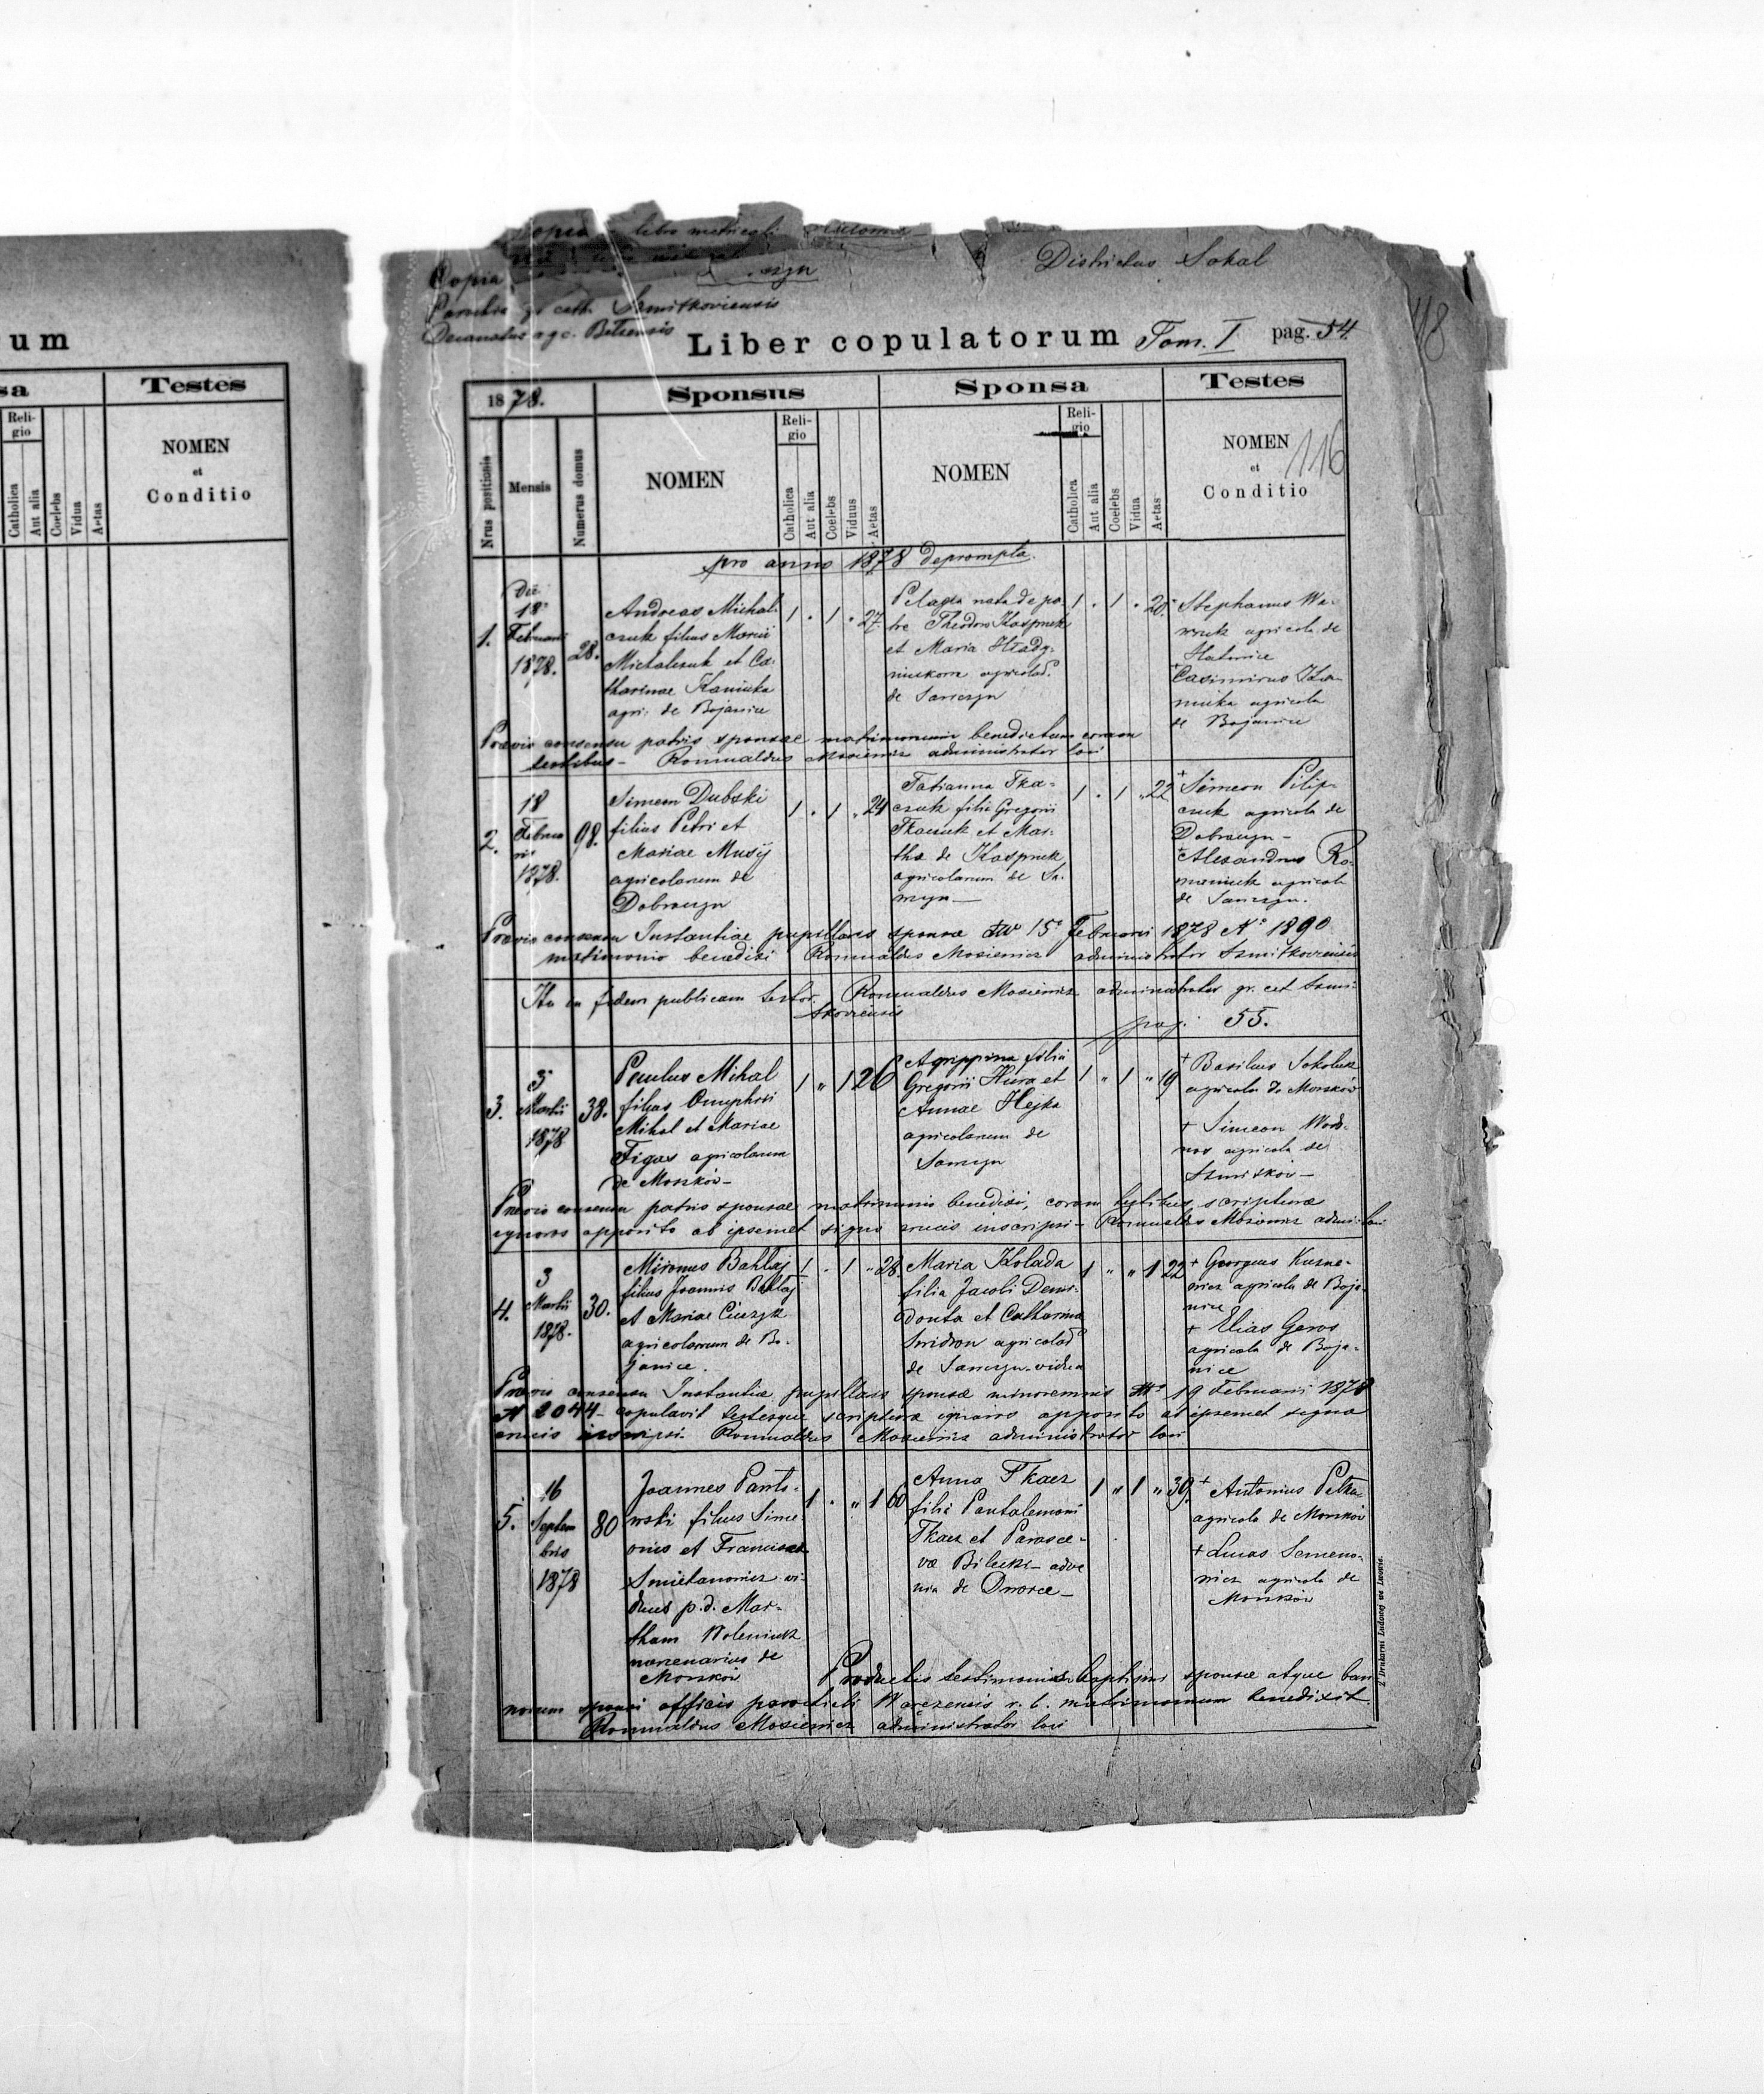 um
sa
Testes
Reli-
gio
NOMEN
et
Conditio
Catholica
Aut alia
Coelebs
Vidua
Aetas
libro
Districtus Sokal
Copia
118
Szmitkoviensis
Liber copulatorum Tom. I pag. 54.
1878.
Sponsus
Sponsa
Testes
Nrus positionis
Mensis
Numerus domus
NOMEN
Reli-
gio
Catholica
Aut alia
Coelebs
Viduus
Aetas
NOMEN
Reli-
gio
Catholica
Aut alia
Coelebs
Vidua
Aetas
NOMEN
et
Conditio
116
pro anno 1878 deprompta.
1.
18
Februarii
1878.
28.
Andreas Michal-
czuk filius
Michalczuk et Ca-
tharinae Kaniuka
agri: de Bojanice
1 . 1 . 27.
Pelagia nata de pa
tre Theodoro Kaspruk
et Maria Hlady-
de Sawczyn
1 . 1 . 20.
Stephanus
agricola de
Casimirus Ka-
niuka agricola
de Bojanice
Praevio consensu patris sponsae matrimonium benedictum coram
testibus - Romualdus Mosiewicz administrator loci
2.
18
Februa
rii
1878.
98.
Simeon Dubski
filius Petri et
Mariae Musij
agricolarum de
Dobraczyn
1 . 1 . 24
Tatianna Tka-
czuk filia Gregorii
Tkaczuk et Mar-
tha de Kaspruk
agricolarum de Sa-
wczyn —
1 . 1 . 22
+ Simeon Pilip-
czuk agricola de
Dobraczyn -
+ Alexandrus Ro-
maniuk agricola
de Sawczyn.
Praevio consensu Instantiae pupillaris sponsae 15 Februarii 1878 N° 1890
matrimonio benedixi Romualdus Mosiewicz administrator Szmitkoviensis
Ita in fidem publicam testor. Romualdus Mosiewicz administrator gr. cat Szmi-
tkoviensis
pag. 55.
3.
3
Martii
1878
38.
Paulus Mihal
filius Onuphrii
Mihal et Mariae
Figas agricolarum
de Morsków -
1 „ 1 26
Agrippina filia
Gregorii Hura et
Annae Hejka
agricolarum de
Sawczyn
1 „ 1 „ 19
+ Basilius Sokoluk
agricola de Morsków
+ Simeon
agricola de
Szmitków —
Praevio consensu patris sponsae matrimonio benedixi, coram testibus, scripturae
ignaros apposito ab ipsemet signo crucis inscripsi - Romualdus Mosiewicz admi: loci
4.
3
Martii
1878.
30.
Mironus Bahlaj
filius Joannis Bahlaj
et Mariae
agricolarum de Bo-
janice.
1 . 1 „ 28.
Maria Kolada
filia Jacobi Demi-
et Catharina
de Sawczyn - vidua
1 „ „ 1 22
+ Georgius Kusne-
wicz agricola de Boja-
nice
+ Elias Geros
agricola de Boja-
nice
Praevio consensu Instantiae pupillaris sponsae minorennis 19 Februarii 1878
N 2044 - copulavit testesque scripturae ignaros apposito ab ipsemet signo
crucis inscripsi. Romualdus Mosiewicz administrator loci
5.
16
Septem
bris
1878
80
Joannes Panto-
wski filius Sime-
onis et Franciscae
Smietanowicz vi-
duus p. d. Mar-
tham Woleniuk
mercenarius de
Morsków
1 . „ 1 60
Anna Tkacz
filia Pantalemoni
Tkacz et Parasce-
vae - adve
na de Dworce -
1 „ 1 „ 39.
+ Antonius Petka
agricola de Morsków
+ Lucas Semeno-
wicz agricola de
Morsków
Productis testimoniis baptismi sponsae atque ban
norum sponsi officii parochiali Warezensis r. l. matrimonium benedixit.
Romualdus Mosiewicz administrator loci
Z Drukarni Ludowej we Lwowie.